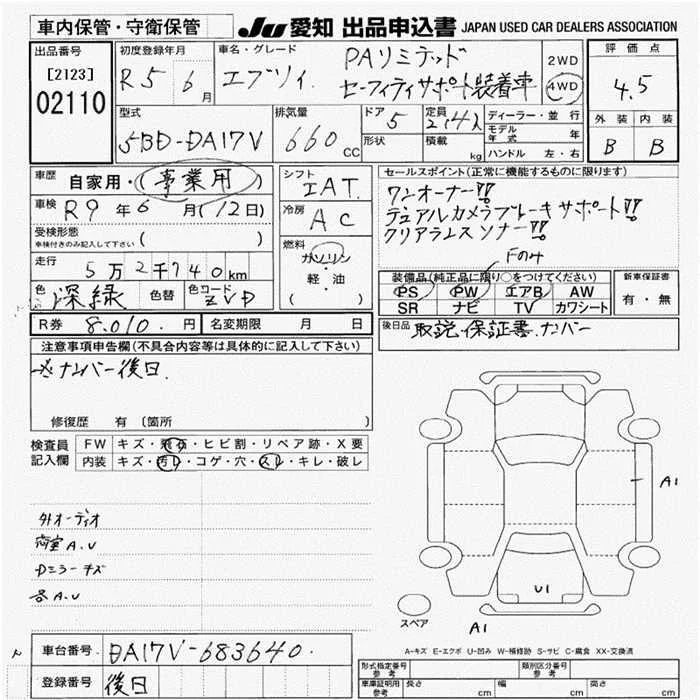 車内保管・守衛保管
JU 愛知 出品申込書 JAPAN USED CAR DEALERS ASSOCIATION
出品番号
[2123]
02110
初度登録年月
R5 6月
車名・グレード
エブリィ
PAリミテッド
セーフティサポート装着車
2WD
4WD
評価点
4.5
外装 内装
B B
型式
5BD-DA17V
排気量
660 CC
ドア 5
形状
定員 2/4人
積載 kg
ディーラー・並行
モデル年式 年
ハンドル 左・右
車歴 自家用・(事業用)
車検 R9年6月(12日)
受検形態
車検付きのみ記入して下さい ( )
走行 5万2千740km
色 深緑 色替 色コード ZVD
シフト
IAT
冷房
AC
燃料
ガソリン
軽・油
( )
セールスポイント(正常に機能するものに限ります)
ワンオーナー!!
デュアルカメラブレーキサポート!!
クリアランスソナー!!
Fのみ
装備品(純正品に限り○をつけてください)
PS PW エアB AW
SR ナビ TV カワシート
新車保証書
有・無
R券 8,010.円 名変期限 月 日
後日品 取説・保証書・ナンバー
注意事項申告欄(不具合内容等は具体的に記入して下さい)
※ナンバー後日.
修復歴 有 〔箇所 〕
検査員記入欄
FW キズ・飛石・ヒビ割・リペア跡・X要
内装 キズ・汚レ・コゲ・穴・スレ・キレ・破レ
外オーディオ
荷室A.U
Dミラーキズ
各A.U
A1
U1
A1
スペア
A-キズ E-エクボ U-凹み W-補修跡 S-サビ C-腐食 XX-交換済
車台番号 DA17V-683640.
登録番号 後日
形式指定番号 参考
類別区分番号 参考
車庫証明用 参考 長さ cm 幅 cm 高さ cm